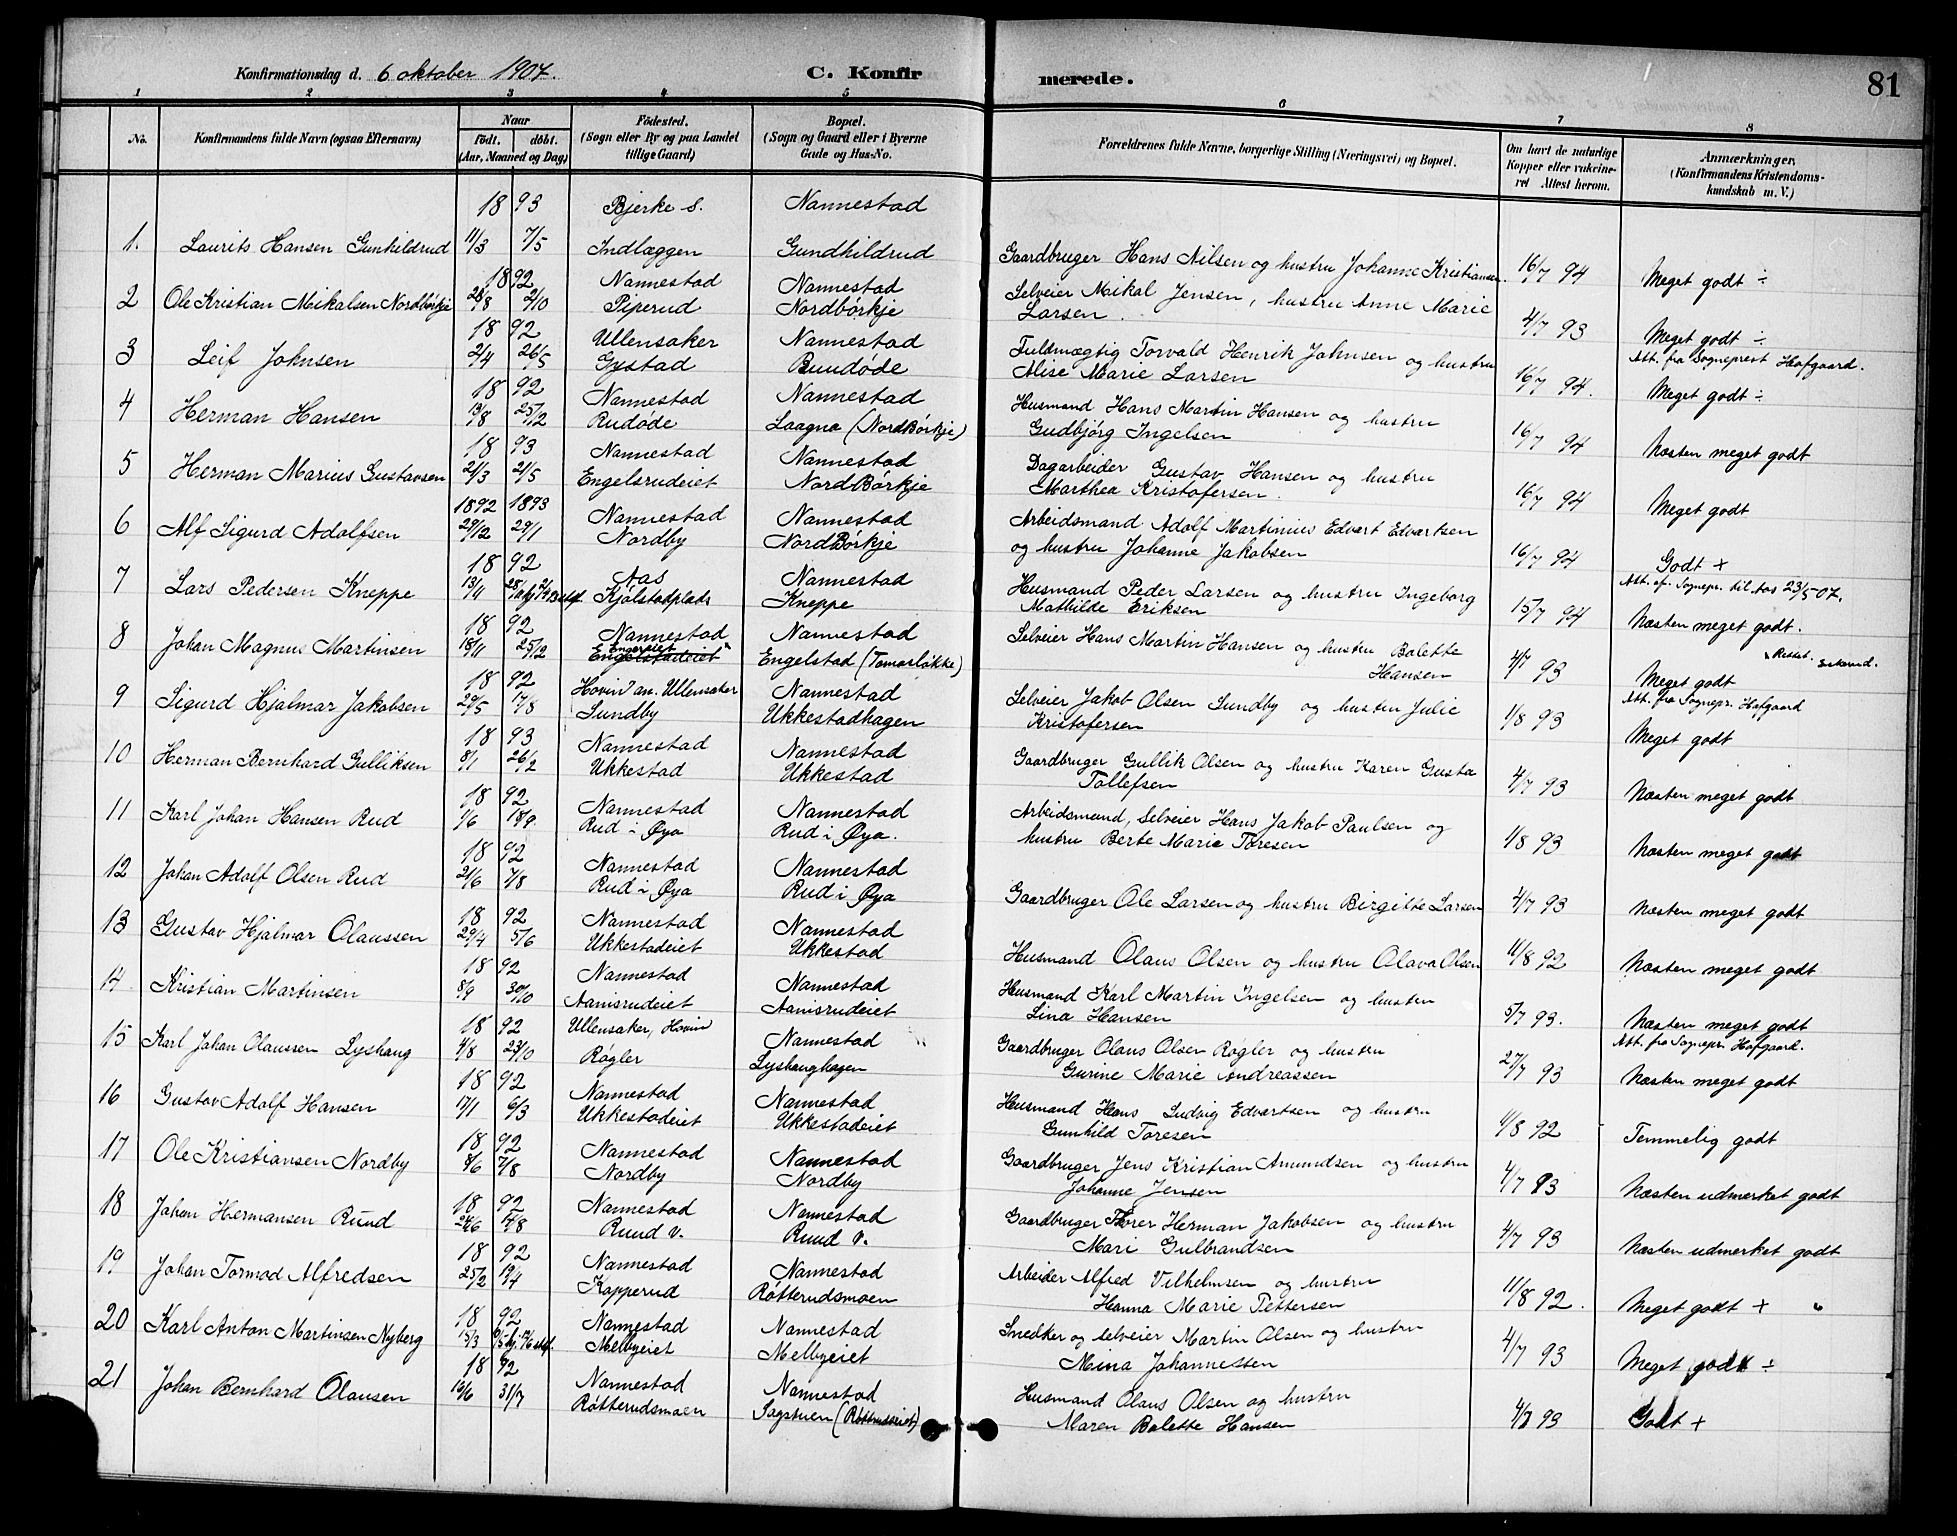 Konfirmationsdag d. 6 oktober 1907.
C. Konfirmerede.
81
1 2 3 4 5 6 7 8
No.
Konfirmandens fulde Navn (ogsaa Efternavn)
Naar
født. døbt.
(Aar, Maaned og Dag)
Fødested.
(Sogn eller By og paa Landet
tillige Gaard)
Bopæl.
(Sogn og Gaard eller i Byerne
Gade og Hus-No.
Forældrenes fulde Navne, borgerlige Stilling (Næringsvei) og Bopæl.
Om havt de naturlige
Kopper eller vakcine-
ret Attest herom.
Anmærkninger,
(Konfirmandens Kristendoms-
kundskab m. V.)
18 93 Bjerke s. Nannestad
1. Laurits Hansen Gunhildrud 11/3 7/5 Indlæggen Gundhildrud Gaardbruger Hans Nilsen og hustru Johanne Kristiansen. 16/7 94 Meget godt ÷
18 92 Nannestad Nannestad Selveier Mikal Jensen, hustru Anne Marie
2 Ole Kristian Mikalsen Nordbörkje 28/8 2/10 Piperud Nordbörkje Larsen. 4/7 93 Meget godt ÷
18 92 Ullensaker Nannestad Fuldmægtig Torvald Henrik Johnsen og hustru Att. fra Sogneprest Hafgaard.
3 Leif Johnsen 2/4 26/5 Gystad Bundøde Alise Marie Larsen 16/7 94. Meget godt ÷
18 92 Nannestad Nannestad Husmand Hans Martin Hansen og hustru
4 Herman Hansen 13/8 25/12 Rudøde Laagna (Nordbörkje) Gudbjørg Ingelsen 16/7 94 Næsten meget godt
18 93 Nannestad Nannestad Dagarbeider Gustav Hansen og hustru
5 Herman Marius Gustavsen 21/3 21/5 Engelsrudeiet Nordbørkje Marthea Kristofersen. 16/7 94 Meget godt
1892 1893 Nannestad Nannestad Arbeidsmand Adolf Martinius Edvart Edvartsen
6 Alf Sigurd Adolfsen 29/12 29/1 Nordby Nordbørkje og hustru Johanne Jakobsen 16/7 94 Godt +
18 92 Aas Nannestad Husmand Peder Larsen og hustru Ingeborg Att. af. Sognepr. til Aas 23/5 07.
7 Lars Pedersen Kneppe 13/11 Kjølstadplads Kneppe Mathilde Eriksen 15/7 94 Næsten meget godt.
18 92 Nannestad Nannestad Selveier Hans Martin Hansen og hustru Balette
8 Johan Magnus Martinsen 18/11 25/12 Engelstadeiet Engelstad (Tomasløkke) Hansen 4/7 93 Meget godt
18 92 Hovin an. Ullensaker Nannestad Selveier Jakob Olsen Sundby og hustru Julie Att. fra Sognepr. Hafgaard
9 Sigurd Hjalmar Jakobsen 29/5 17/8 Sundby Ukkestadhagen Kristofersen 1/8 93 Meget godt
18 93 Nannestad Nannestad Gaardbruger Gullik Olsen og hustru Karen Gusta
10 Herman Bernhard Gulliksen 8/1 26/2 Ukkestad Ukkestad Tollefsen 4/7 93 Næsten meget godt
18 92 Nannestad Nannestad Arbeidsmand, selveier Hans Jakob Paulsen og
11 Karl Johan Hansen Rud 1/6 18/9 Rud i Øya Rud i Øya. hustru Berte Marie Toresen 1/8 93 Næsten meget godt
18 92 Nannestad Nannestad
12 Johan Adolf Olsen Rud 21/6 7/8 Rud i Øya Rud i Øya Gaardbruger Ole Larsen og hustru Birgitte Larsen 4/7 93 Næsten meget godt
18 92 Nannestad Nannestad
13 Gustav Hjalmar Olaussen 29/4 5/6 Ukkestadeiet Ukkestad Husmand Olaus Olsen og hustru Olava Olsen 11/8 92 Næsten meget godt
18 92 Nannestad Nannestad Husmand Karl Martin Ingelsen og hustru
14 Kristian Martinsen 8/9 30/10 Aamsrudeiet Aamsrudeiet Lina Hansen 5/7 93. Næsten meget godt
18 92 Ullensaker, Hovin Nannestad Gaardbruger Olaus Olsen Røgler og hustru Att. fra Sognepr. Hafgaard.
15 Karl Johan Olaussen Lyshaug 4/8 23/10 Røgler Lyshaughagen Gurine Marie Andreassen 27/7 93 Næsten meget godt
18 92 Nannestad Nannestad Husmand Hans Ludvig Edvartsen og hustru
16 Gustav Adolf Hansen 17/1 6/3 Ukkestadeiet Ukkestadeiet Gunhild Toresen 11/8 92 Temmelig godt
18 92 Nannestad Nannestad Gaardbruger Jens Kristian Amundsen og hustru
17 Ole Kristiansen Nordby 8/6 7/8 Nordby Nordby Johanne Jensen 4/7 93 Næsten udmerket godt
18 92 Nannestad Nannestad Gaardbruger Thorer Herman Jakobsen og hustru
18 Johan Hermansen Ruud 24/6 14/8 Ruud v. Ruud v. Mari Gulbrandsen 4/7 93 Næsten udmerket godt
18 92 Nannestad Nannestad Arbeider Alfred Vilhelmsen og hustru
19 Johan Tormod Alfredsen 25/2 19/4 Kopperud Røtterudsmoen Hanna Marie Pettersen 11/8 92. Meget godt +
18 92 Nannestad Nannestad Snedker og selveier Martin Olsen og hustru
20 Karl Anton Martinsen Nyberg 15/3 Melbyeiet Melbyeiet Mina Johannessen 4/7 93 Meget godt ÷
18 92 Nannestad Nannestad Husmand Olaus Olsen og hustru
21 Johan Bernhard Olausen 16/6 31/7 Røtterudsmoen Sagstuen (Røtterudeiet) Maren Balette Hansen 4/7 93 Godt +